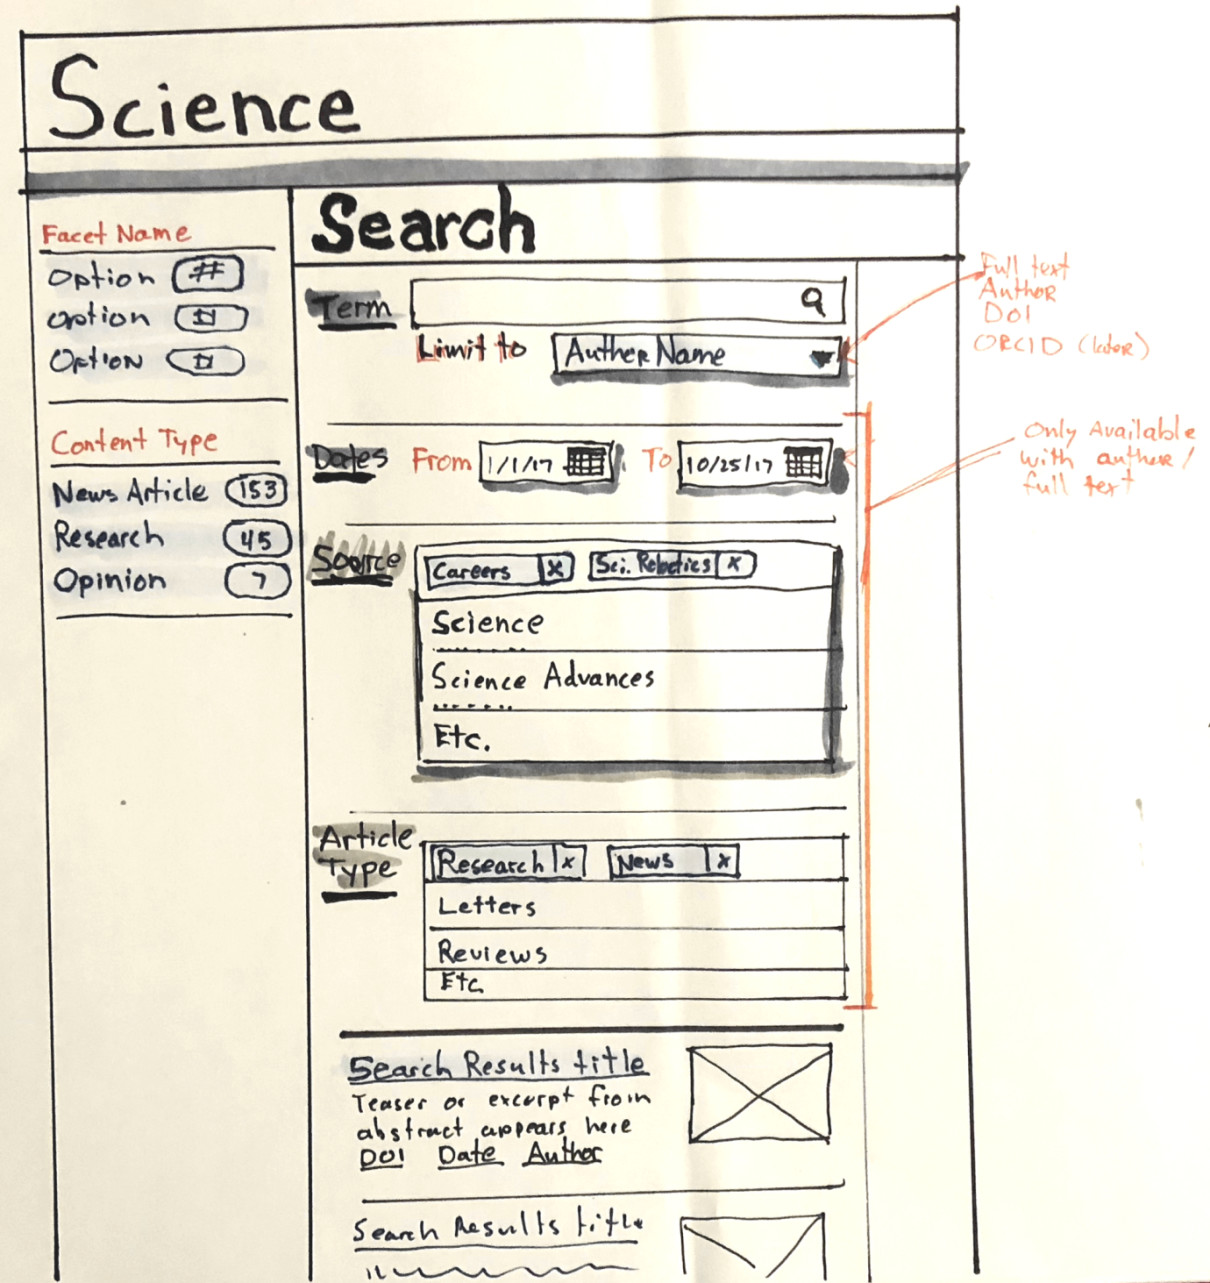 Science
Search
Facet Name
Option #
Option
Option
Content Type
News Article 153
Research 45
Opinion 7
Term
Limit to Auther Name
Full text
Author
DOI
ORCID (later)
Dates From 1/1/17 To 10/25/17
Only Available
with auther/
full text
Source
Careers x Sci. Robotics x
Science
Science Advances
Etc.
Article
Type
Research x News x
Letters
Reviews
Etc
Search Results title
Teaser or excerpt from
abstract appears here
DOI Date Author
Search Results title